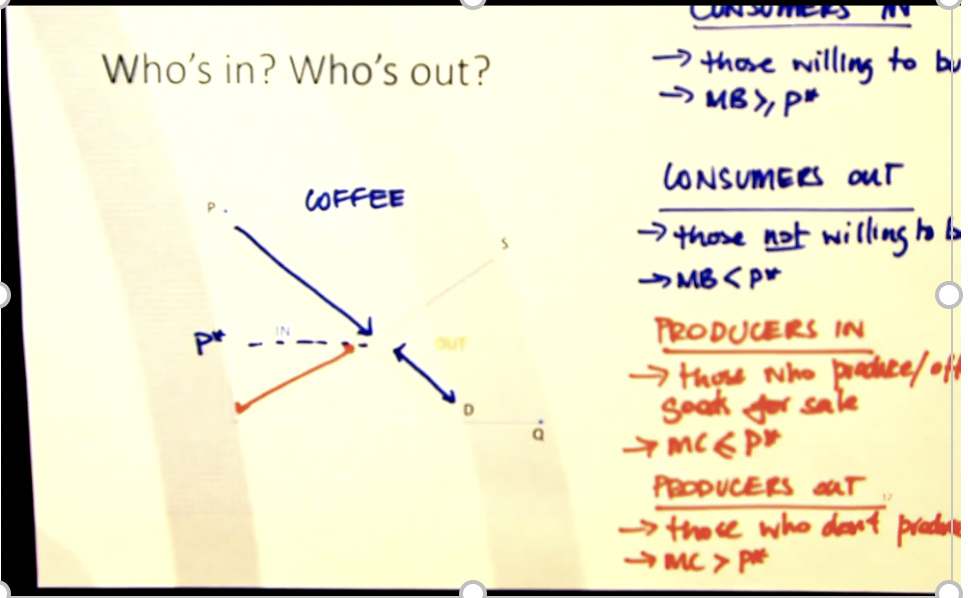 Who's in? Who's out?
COFFEE
P
S
P*
IN
OUT
D
Q
CONSUMERS IN
→ those willing to
→ MB ≥ P*
CONSUMERS OUT
→ those not willing to
→ MB < P*
PRODUCERS IN
→ those who produce/
goods for sale
→ MC ≤ P*
PRODUCERS OUT
17
→ those who don't
→ MC > P*